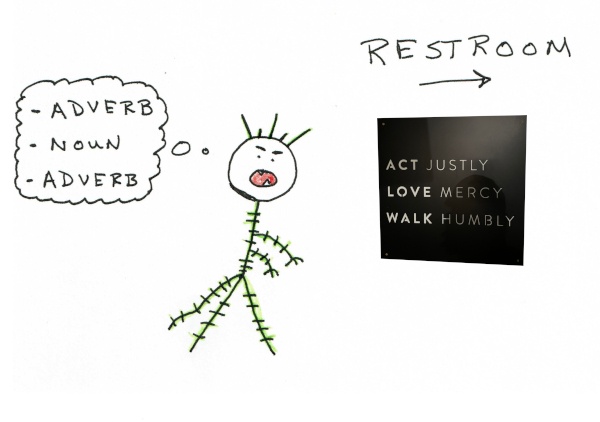 RESTROOM
- ADVERB
- NOUN
- ADVERB
ACT JUSTLY
LOVE MERCY
WALK HUMBLY